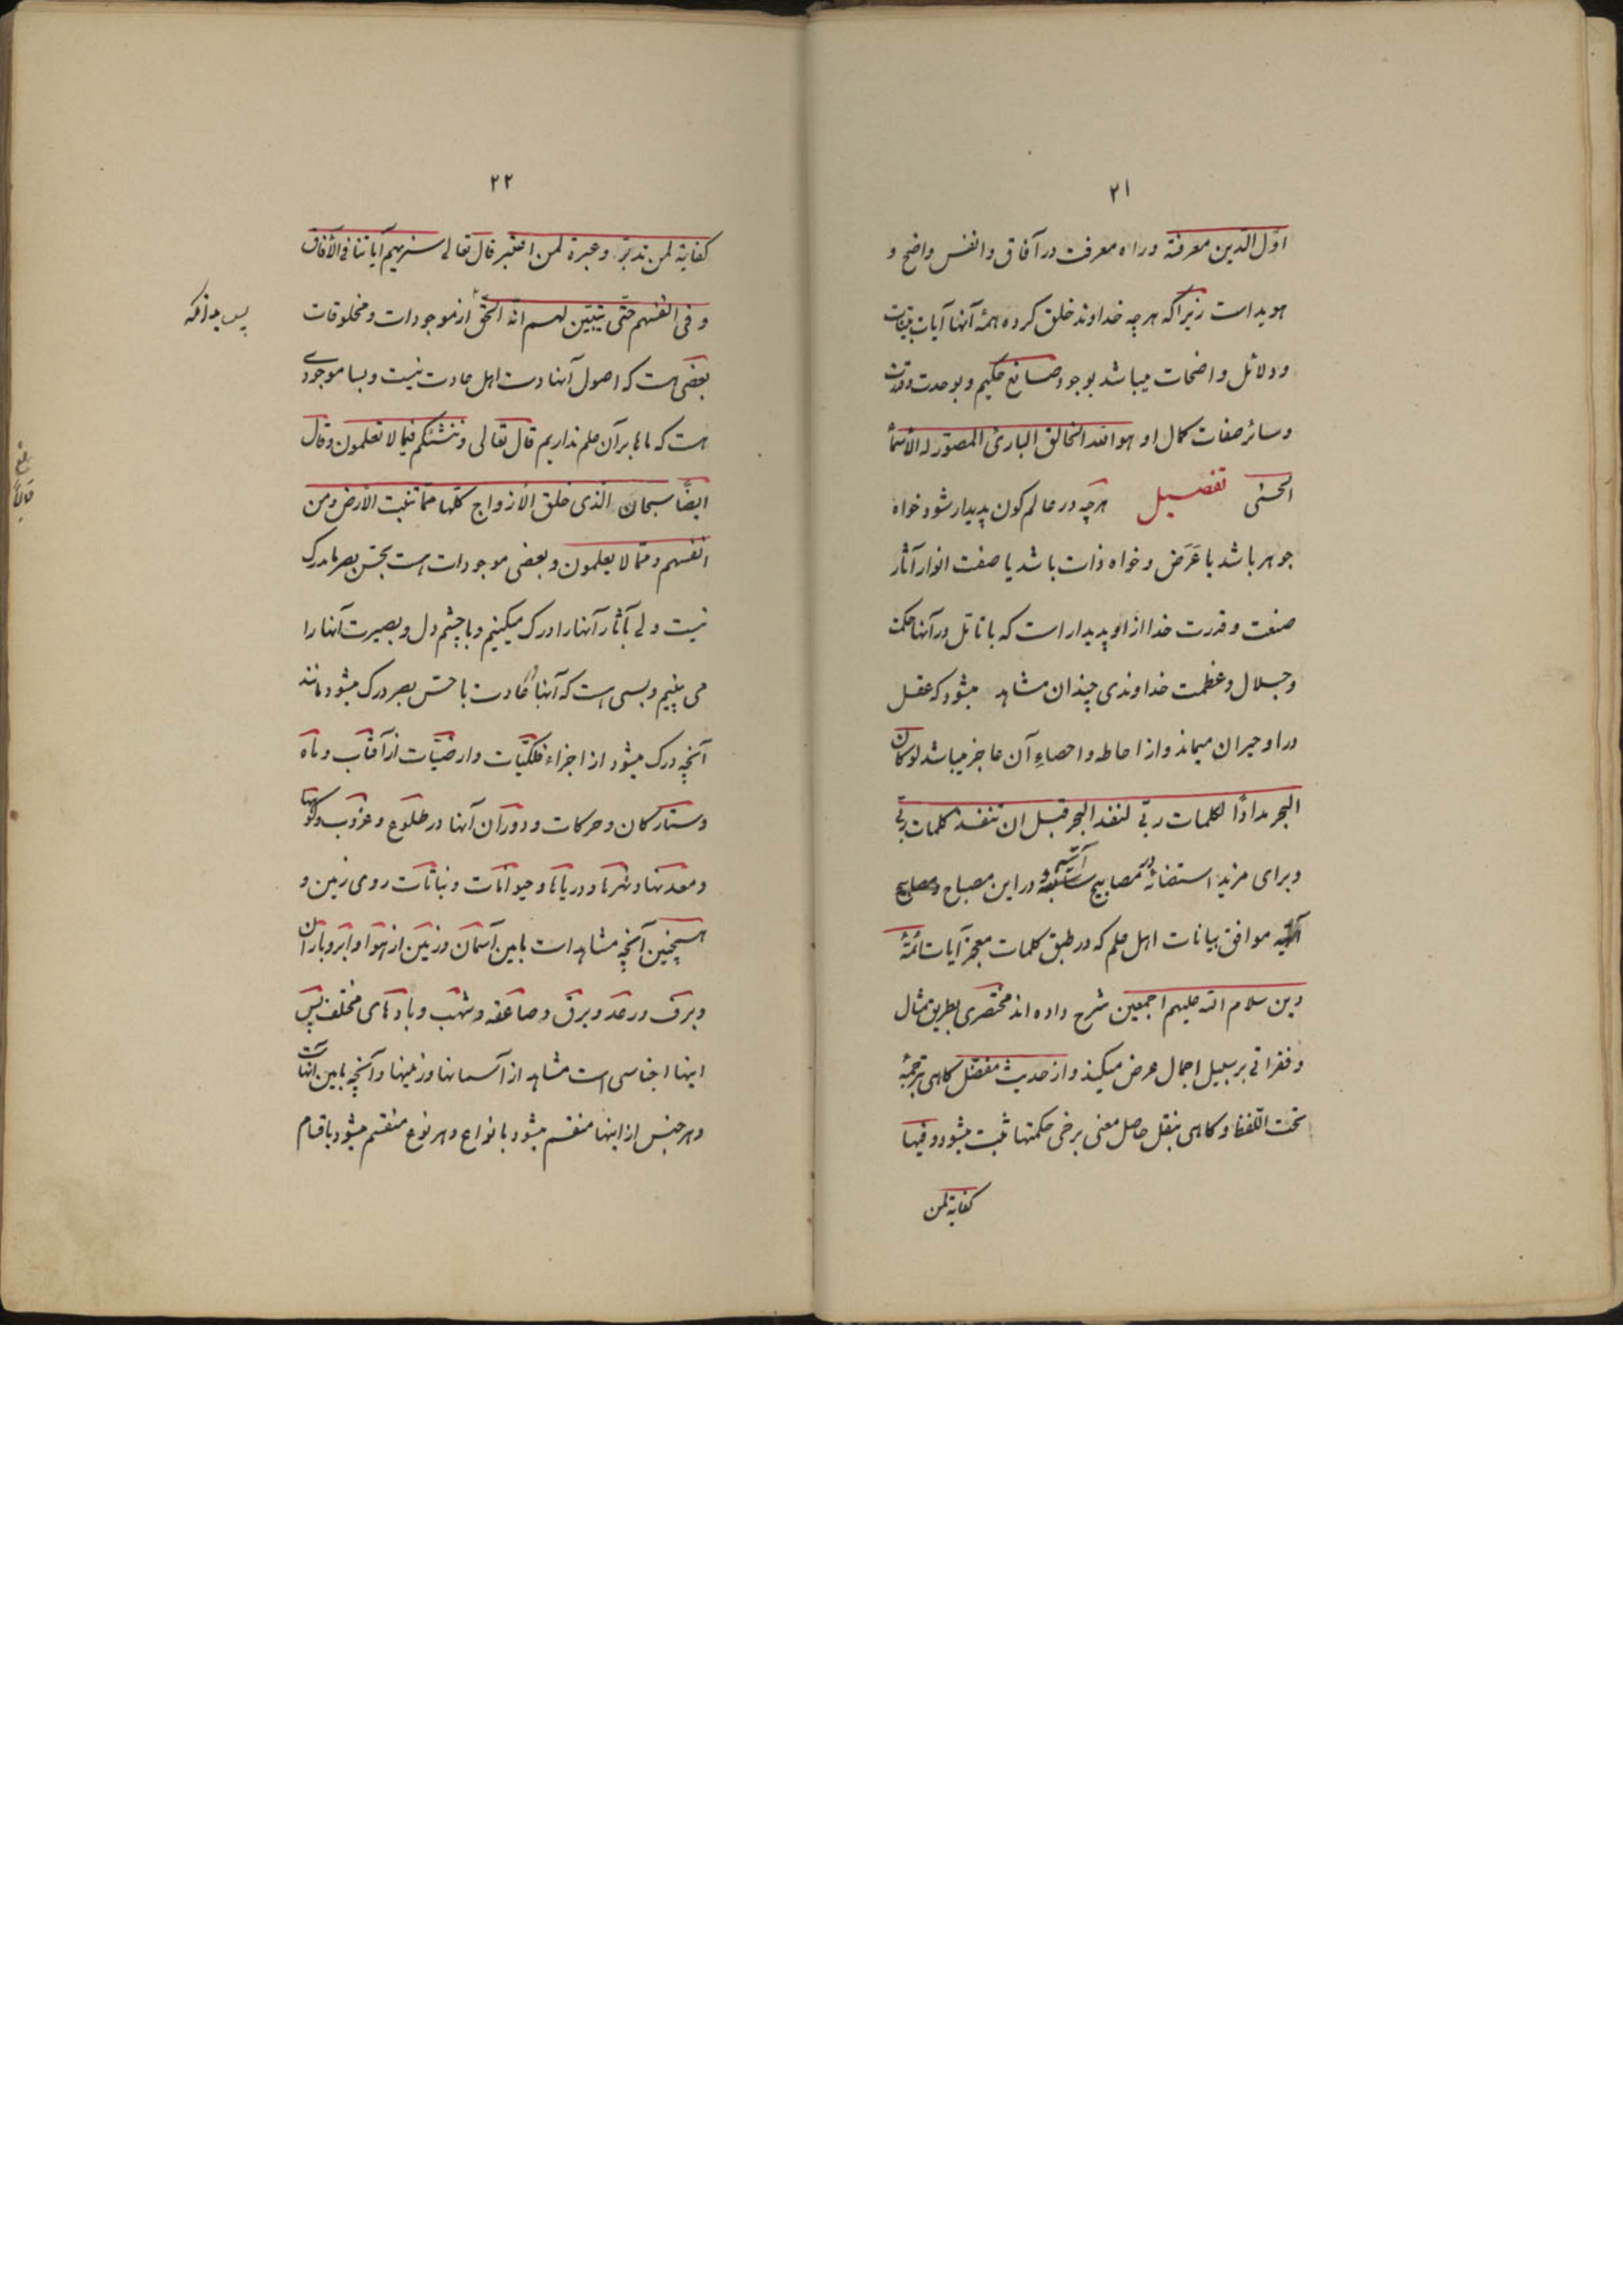 ۲۱
اوّل الدّین معرفته وراه معرفت در آفاق وانفس واضح و
هویداست زیراکه هرچه خداوند خلق کرده همهٔ آنها آیات بیّنات
ودلائل واضحات میباشد بوجود صانع حکیم وبوحدت وقدرت
وسائر صفات کمال او هو الله الخالق البارئ المصوّر له الأسمآء
الحسنی تفصیل هرچه در عالم کون پدیدار شود خواه
جوهر باشد یا عَرَض وخواه ذات باشد یا صفت انوار آثار
صنعت وقدرت خدا از او پدیدار است که با تأمّل در آنها حکمت
وجلال وعظمت خداوندی چندان مشاهد میشود که عقل
در او حیران میماند واز احاطه واحصاءِ آن عاجز میباشد لو کان
البحر مدادًا لکلمات ربّی لنفد البحر قبل ان تنفد کلمات ربّی
وبرای مزید استضائه در مصابیح سابقه و آتیه در این مصباح ومصابیح
آتیه موافق بیانات اهل علم که در طبق کلمات معجز آیات ائمّهٔ
دین سلام الله علیهم اجمعین شرح داده اند مختصری بطریق مثال
وفقراتی بر سبیل اجمال عرض میکند واز حدیث مفضّل کاهی بترجمهٔ
تحت اللّفظ وکاهی بنقل حاصل معنی برخی حکمتها ثبت میشود وفیها
کفایة لمن
۲۲
کفایة لمن تدبّر وعبرة لمن اعتبر قال تعالی سنریهم آیاتنا فی الآفاق
وفی انفسهم حتّی یتبیّن لهم انّه الحقّ از موجودات ومخلوقات
پس بدانکه
بعضی هست که اصول آنها دست اهل عادت نیست وبسا موجودی
هست که ماها بر آن علم نداریم قال تعالی وننشئکم فیما لا تعلمون وقال
ایضًا سبحان الّذی خلق الأزواج کلّها ممّا تنبت الأرض ومن
انفسهم وممّا لا یعلمون وبعضی موجودات هست بحسّ بصر ما مدرک
نیست ولی آثار آنها را درک میکنیم وبا چشم دل وبصیرت آنها را
می بینیم وبسی هست که آنها عادت با حسّ بصر درک میشود مانند
آنچه درک میشود از اجزاء فلکیّات وارضیّات از آفتاب وماه
وستارکان وحرکات ودوران آنها در طلوع وغروب وکوهها
ومعدنها ونهرها ودریاها وحیوانات ونباتات روی زمین و
همچنین آنچه مشاهد است بابین آسمان وزمین از هوا وابر وباران
وبرف ورعد وبرق وصاعقه وشهب وبادهای مختلف پس
اینها اجناسی است مشاهد از آسمانها وزمینها وآنچه بابین آنهاست
وهر جنس از اینها منقسم میشود بانواع وهر نوع منقسم میشود باقسام